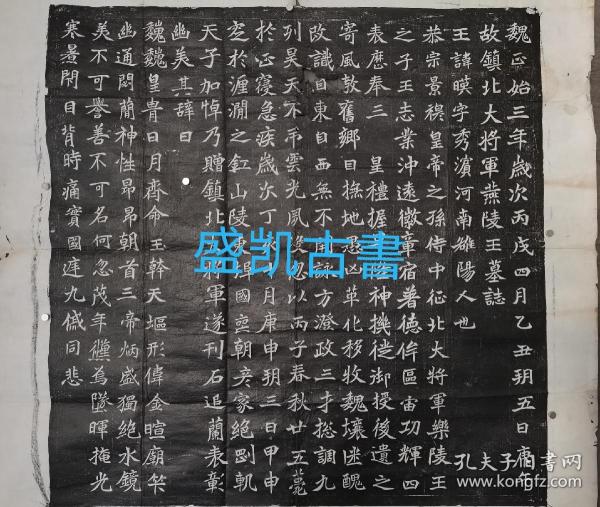 魏正始三年歲次丙戌四月乙丑朔五日庚午
故鎮北大將軍燕陵王墓誌
王諱暯字秀濵河南雒陽人也
恭宗景穆皇帝之孫侍中征北大將軍樂陵王
之子王志業沖遠徽章宿著德侔區宙功輝四
表麽奉三皇禮握神機徙御授後遺之
寄風敦舊鄉曰撫地愚凶革化移牧魏壤迷醜
改識自東自西無不開詠方澄政三才揔調九
列昊天不弔雲光夙忽以丙子春秋廿五薨
於正寑急疾歲次丁月庚申朔三日甲申
窆於瀍澗之釭山陵東埠國哀朝彦家絕劉軌
天子加悼乃贈鎮北將軍遂刊石追蘭表彰
幽美其辭曰
巍巍皇胄日月齊命王幹天堀形偉金暄廟
幽通閟蘭神性昂昂朝首三帝炳盛獨絕水鏡
美不可譽善不可名何忽茂年墜暉掩光
寒暑閇目背時痛寳國遅九儀同悲
盛凯古書
孔夫子旧书网
kongfz.com